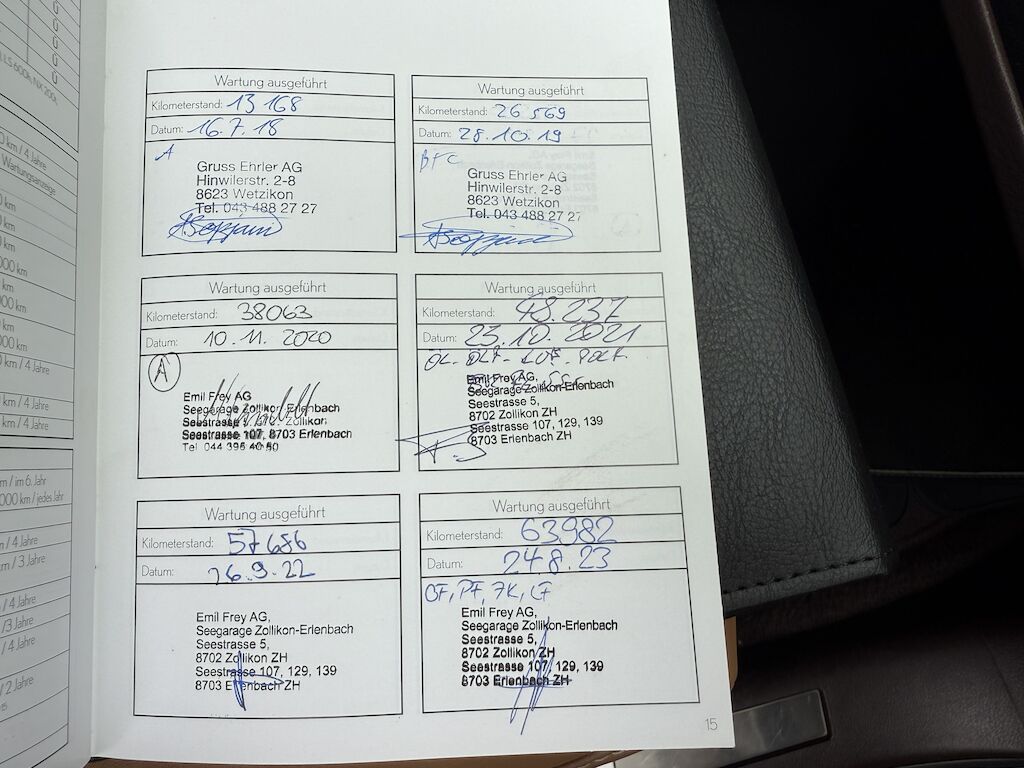 LS 600h, NX 200t,
0 km / 4 Jahre
Wartungsanzeige
km
0 km
000 km
km
000 km
km
000 km
km / 4 Jahre
km / 4 Jahre
km / 4 Jahre
m / im 6. Jahr
000 km / jedes Jahr
m / 4 Jahre
km / 3 Jahre
/ 4 Jahre
/ 3 Jahre
/ 4 Jahre
/ 2 Jahre
Wartung ausgeführt
Kilometerstand: 13 168
Datum: 16.7.18
A
Gruss Ehrler AG
Hinwilerstr. 2-8
8623 Wetzikon
Tel. 043 488 27 27
Wartung ausgeführt
Kilometerstand: 26 569
Datum: 28.10.19
BFC
Gruss Ehrler AG
Hinwilerstr. 2-8
8623 Wetzikon
Tel. 043 488 27 27
Wartung ausgeführt
Kilometerstand: 38063
Datum: 10.11.2020
A
Emil Frey AG
Seegarage Zollikon-Erlenbach
Seestrasse Zollikon
Seestrasse 107, 8703 Erlenbach
Tel 044 396 40 50
Wartung ausgeführt
Kilometerstand: 48.237
Datum: 23.10.2021
Emil Frey AG,
Seegarage Zollikon-Erlenbach
Seestrasse 5,
8702 Zollikon ZH
Seestrasse 107, 129, 139
8703 Erlenbach ZH
Wartung ausgeführt
Kilometerstand: 57686
Datum: 26.9.22
Emil Frey AG,
Seegarage Zollikon-Erlenbach
Seestrasse 5,
8702 Zollikon ZH
Seestrasse 107, 129, 139
8703 Erlenbach ZH
Wartung ausgeführt
Kilometerstand: 63982
Datum: 24.8.23
OF, PF, FK, LF
Emil Frey AG,
Seegarage Zollikon-Erlenbach
Seestrasse 5,
8702 Zollikon ZH
Seestrasse 107, 129, 139
8703 Erlenbach ZH
15